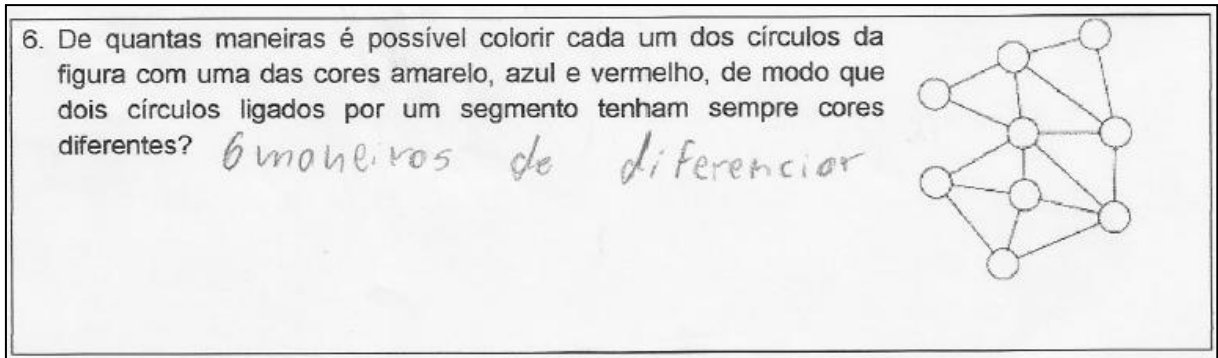 6. De quantas maneiras é possível colorir cada um dos círculos da
figura com uma das cores amarelo, azul e vermelho, de modo que
dois círculos ligados por um segmento tenham sempre cores
diferentes? 6 maneiras de diferenciar